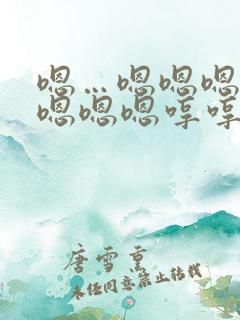 嗯…嗯嗯嗯
嗯嗯嗯哼哼
唐雪熏
未经同意禁止转载